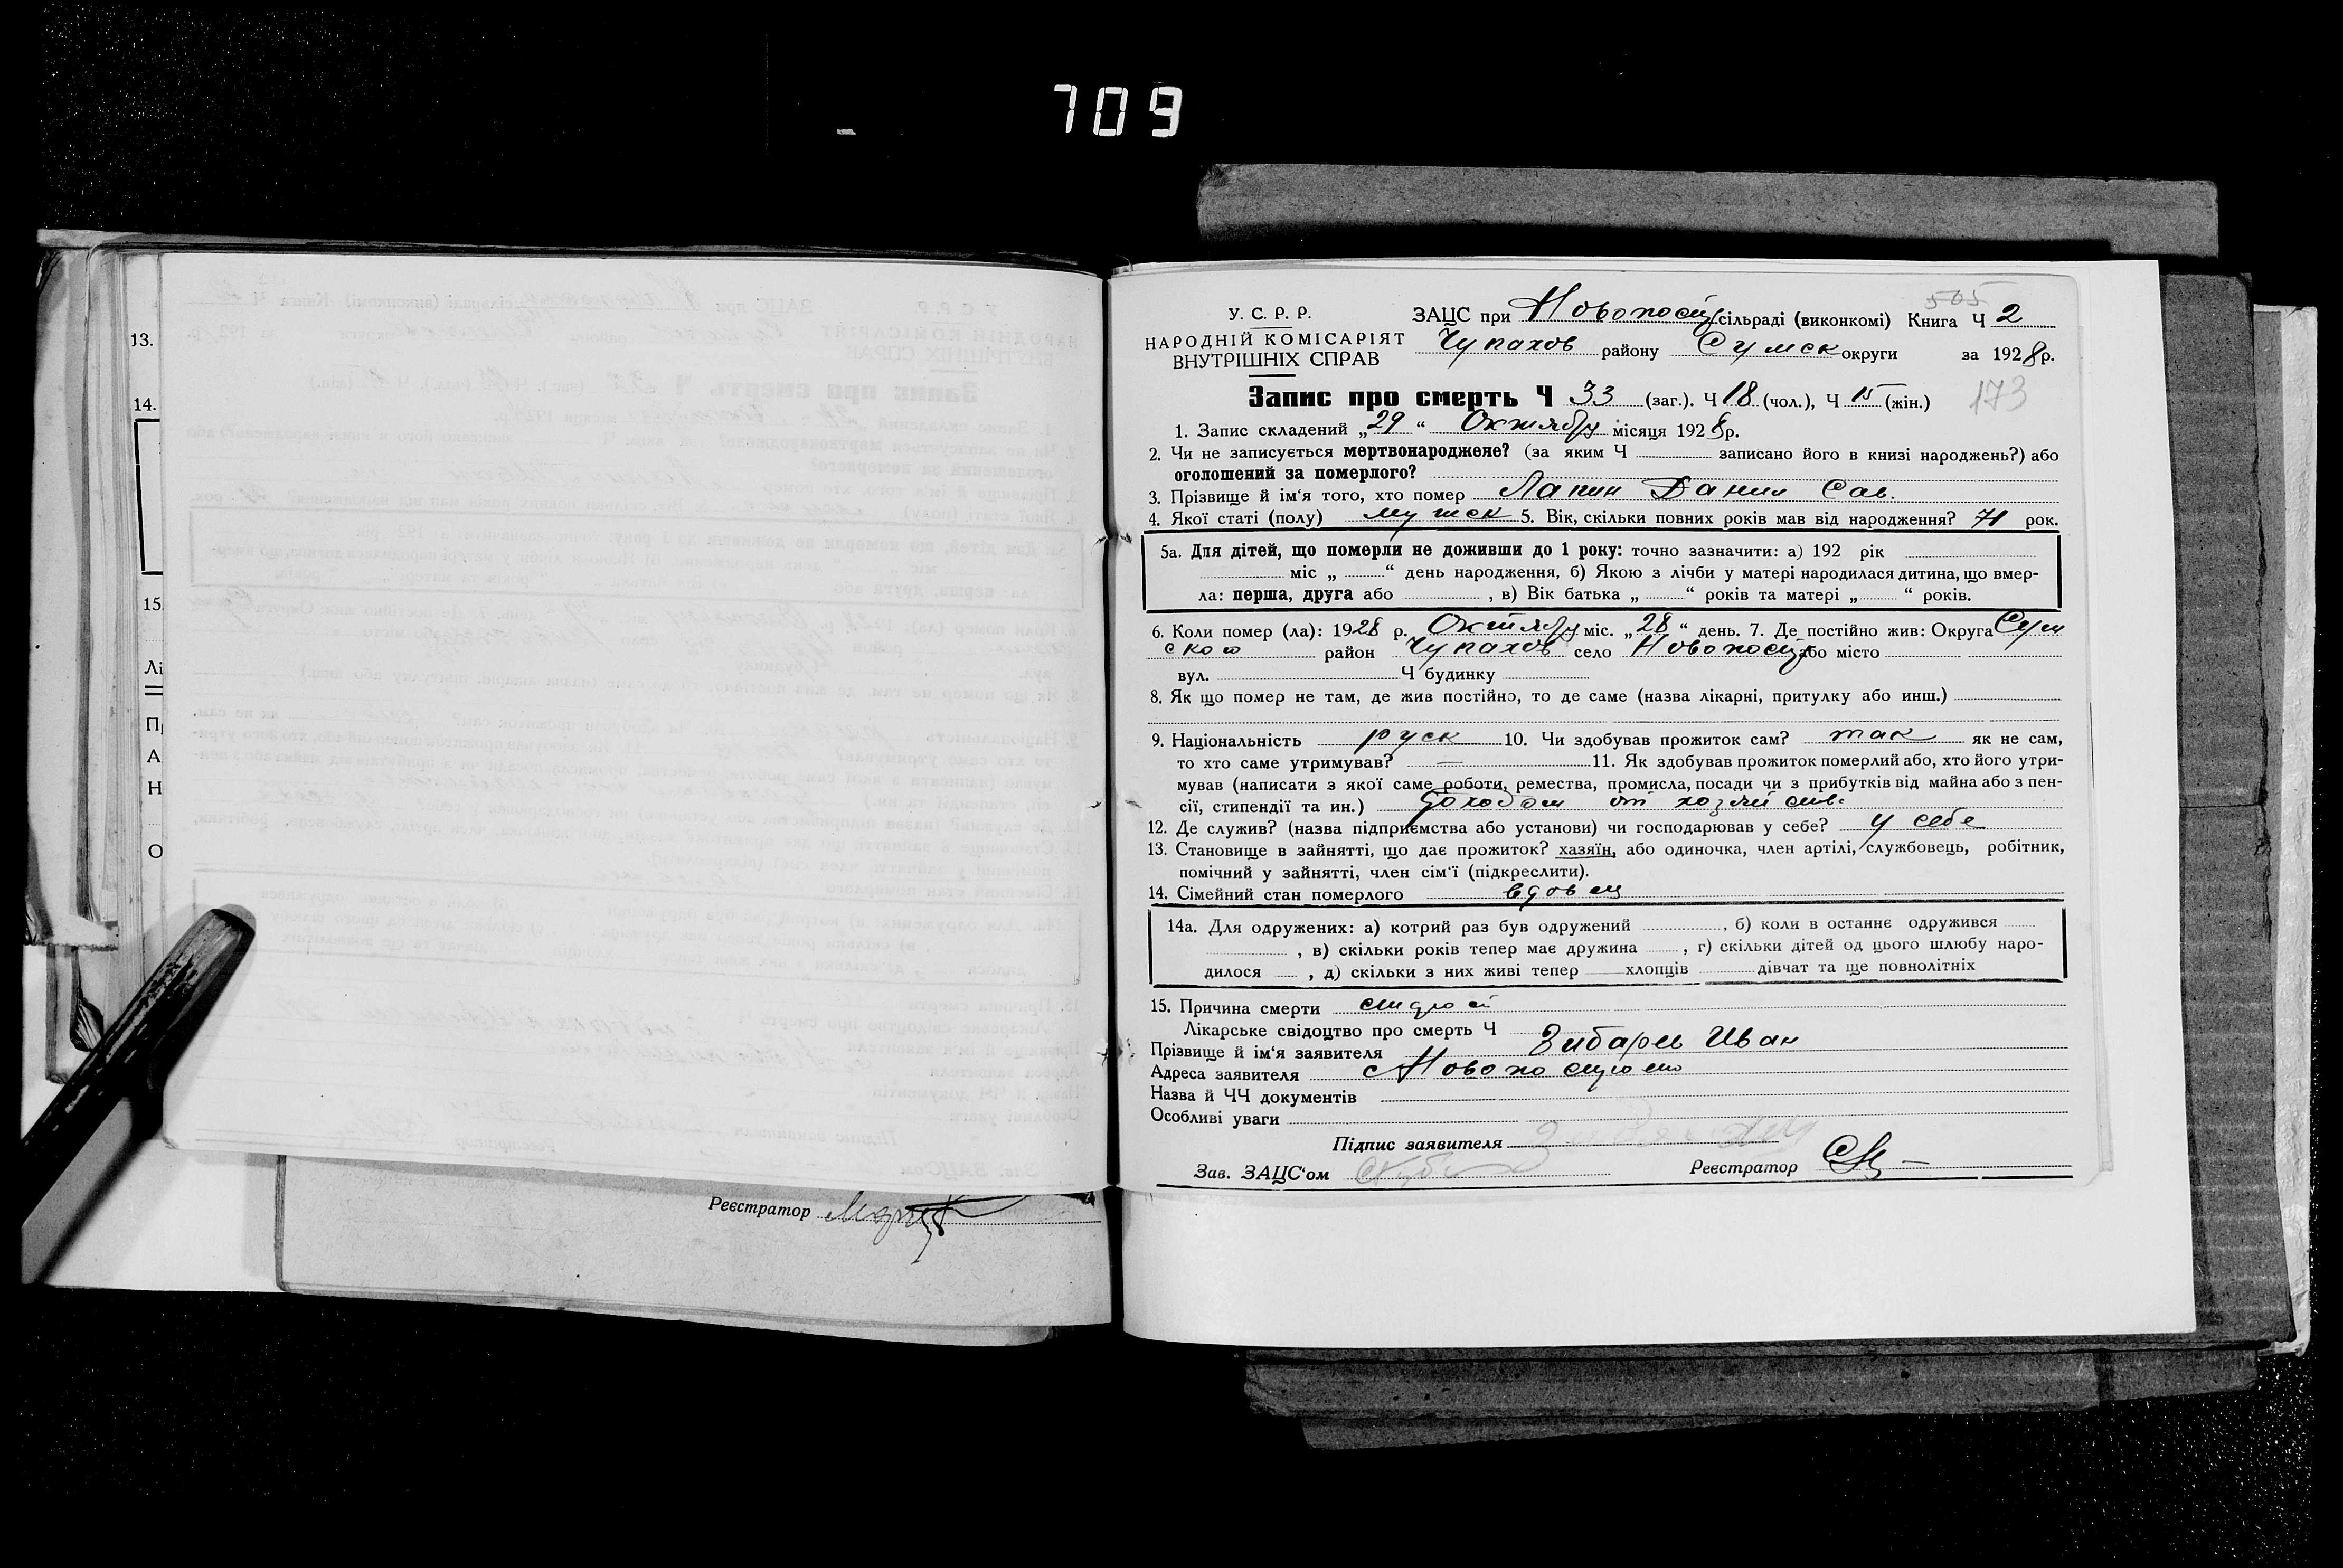 709
13.
14.
15.
Лі
П
А
Н
О
Реєстратор
505
У. С. Р. Р.
НАРОДНІЙ КОМІСАРІЯТ
ВНУТРІШНІХ СПРАВ
ЗАЦС при Новопост сільраді (виконкомі) Книга Ч 2
Чупахов району Сумск округи за 1928 р.
Запис про смерть Ч 33 (заг.). Ч 18 (чол.), Ч 15 (жін.) 173
1. Запис складений „29“ Октября місяця 1928 р.
2. Чи не записується мертвонароджене? (за яким Ч записано його в книзі народжень?) або
оголошений за померлого?
3. Прізвище й ім‘я того, хто помер Лапин Данил Сав.
4. Якої статі (полу) мужск 5. Вік, скільки повних років мав від народження? 71 рок.
5а. Для дітей, що померли не доживши до 1 року: точно зазначити: а) 192 рік
міс „ “ день народження, б) Якою з лічби у матері народилася дитина, що вмер-
ла: перша, друга або , в) Вік батька „ “ років та матері „ “ років.
6. Коли помер (ла): 1928 р. Октября міс. „28“ день. 7. Де постійно жив: Округа Сум
ского район Чупахов село Новопост або місто
вул. Ч будинку
8. Як що помер не там, де жив постійно, то де саме (назва лікарні, притулку або инш.)
9. Національність руск 10. Чи здобував прожиток сам? так як не сам,
то хто саме утримував? — 11. Як здобував прожиток померлий або, хто його утри-
мував (написати з якої саме роботи, ремества, промисла, посади чи з прибутків від майна або з пен-
сії, стипендії та ин.) доходом от хозяйств.
12. Де служив? (назва підприємства або установи) чи господарював у себе? у себе
13. Становище в зайнятті, що дає прожиток? хазяїн, або одиночка, член артілі, службовець, робітник,
помічний у зайнятті, член сім‘ї (підкреслити).
14. Сімейний стан померлого вдовец
14а. Для одружених: а) котрий раз був одружений , б) коли в останнє одружився
, в) скільки років тепер має дружина , г) скільки дітей од цього шлюбу наро-
дилося , д) скільки з них живі тепер хлопців дівчат та ще повнолітніх
15. Причина смерти
Лікарське свідоцтво про смерть Ч
Прізвище й ім‘я заявителя Зибарев Иван
Адреса заявителя
Назва й ЧЧ документів
Особливі уваги
Підпис заявителя
Зав. ЗАЦС‘ом Реєстратор